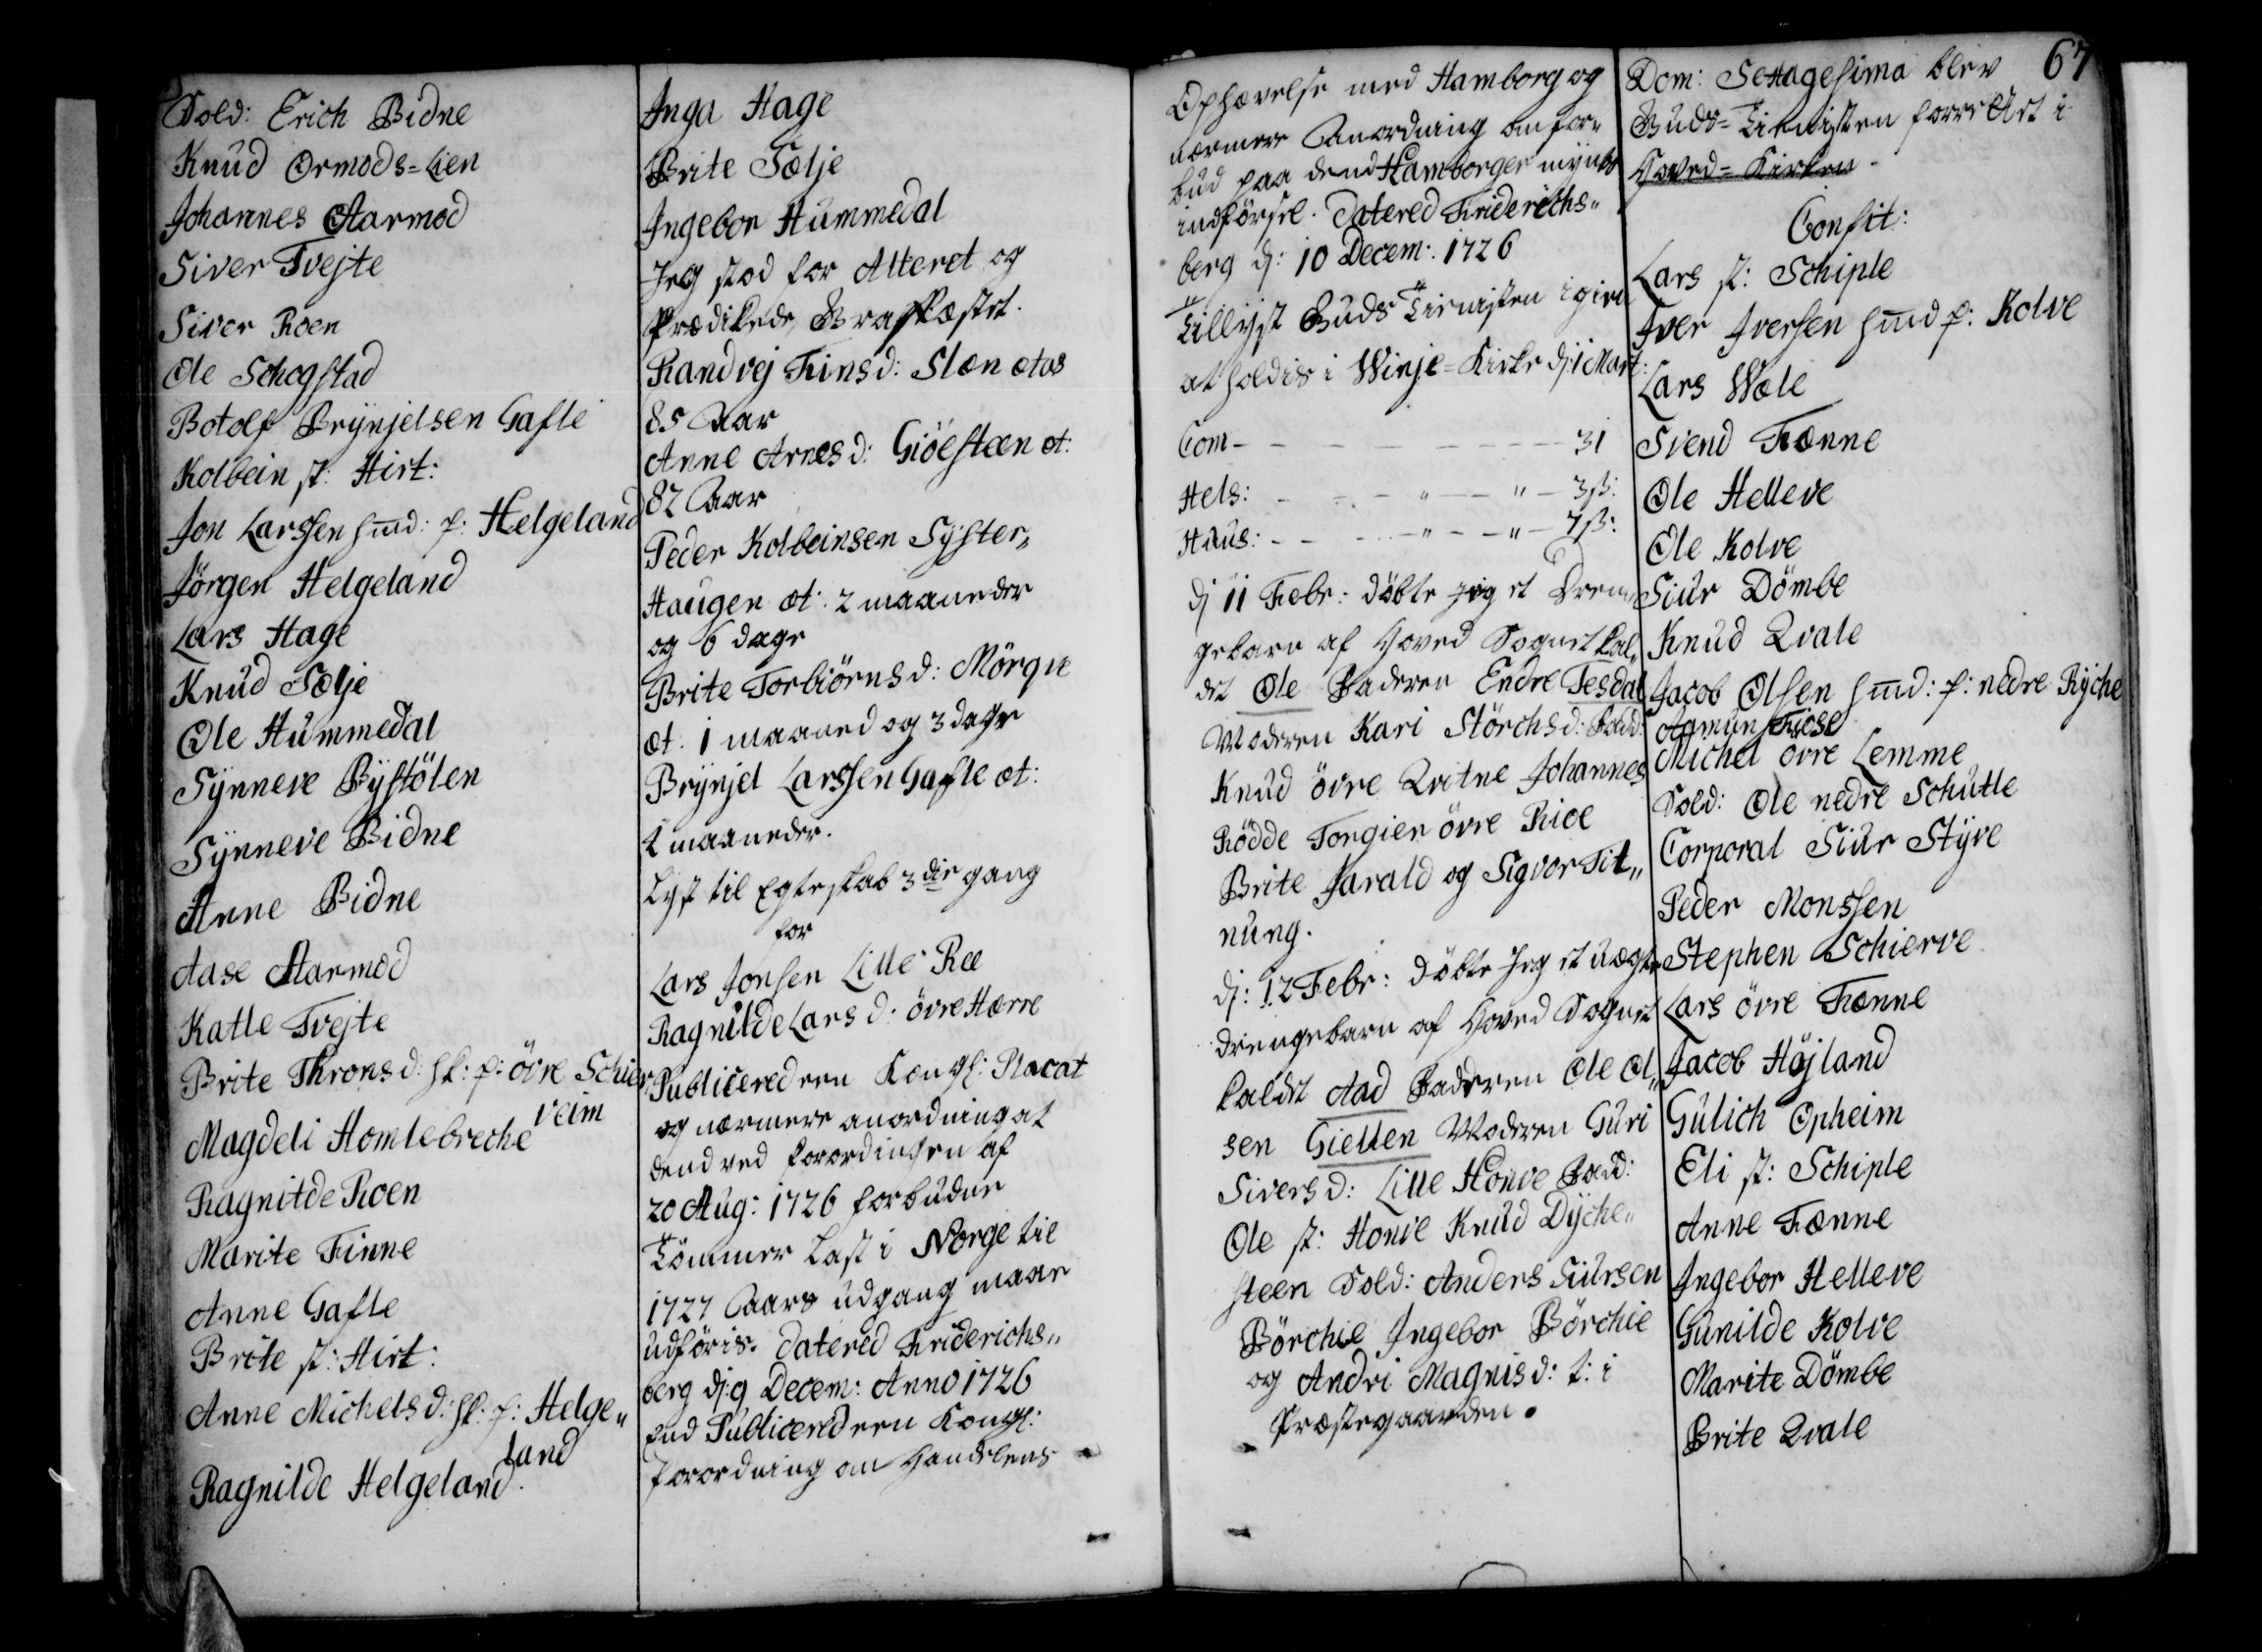 Sold: Erich Bidne
Knud Ormods=Lien
Johannes Aarmod
Siver Tvejte
Siver Roen
Ole Schogstad
Botolf Brynjelsen Gafle
Kolbein st: Hirt:
Jon Larssen hmd: p: Helgeland
Jörgen Helgeland
Lars Hage
Knud Sælje
Ole Hummedal
Synneve Bystölen
Synneve Bidne
Anne Bidne
Aase Aarmod
Katle Tvejte
Brite Throns d: hk: p: övre Schier
veim
Magdeli Homlebreche
Ragnilde Roen
Marite Finne
Anne Gafle
Brite st: Hirt:
Anne Michels d: hk: p: Helge„
land
Ragnilde Helgeland.
Inga Hage
Brite Sælje
Ingebor Hummedal
Jeg stod for Alteret og
Prædikede, Grafkæstet.
Randvej Finsd: Slæn ætas
85 Aar
Anne Arnesd: Giöesteen æt:
82 Aar
Peder Kolbeinsen Syster„
Haugen æt: 2 maaneder
og 6 dage
Brite Torbiörnsd: Mörqve
æt. 1 maaned og 3 dage
Brynjel Larssen Gafle æt:
2 maaneder.
Lyst til Egteskab 3die gang
for
Lars Jonsen Lille Ree
Ragnilde Lars d: övre Hærre
Publicered een Kongl: Placat
og nærmere anordning at
dend ved forordingen af
20 Aug: 1726 forbudne
Tömmer Last i Norge til
1727 Aars udgang maae
udföris. Datered Friderichs„
berg d: 9 Decem: Anno 1726
End Publicered een Kongl:
forordning om Handelens
Ophævelse med Hamborg og
nærmere Anordning om for„
bud paa dend Hamborger mynts
indförsel. Datered Friderichs„
berg d: 10 Decem: 1726
Tillyst Guds Tienisten igien
at holdis i Winje=Kirke d: 1 Mart:
Com - - - 31
Hels: - - „ - „ - 3ß:
Haus: - - „ - „ - 7ß:
d: 11 Febr: döbte jeg et Dren„
gebarn af Hoved Sognet kal„
det Ole Faderen Endre Tesdal
Moderen Kari Störchsd: Fadd:
Knud övre Qvitne Johannes
Rödde Torgier övre Rioe
Brite Jarald og Sigvor Tit„
nung.
d: 12 Febr: döbte Jeg et uægte
drengebarn af Hoved Sognet
kaldet Aad Faderen Ole Ol„
sen Giellen Moderen Guri
Sivers d: Lille Honve Fadd:
Ole st: Honve Knud Dyche„
steen Sold: Anders Siursen
Börchie Ingebor Börchie
og Andri Magnis d: t: i
Præstegaarden.
67
Dom: Sexagesima blev
Guds=Tienisten forrettet i
Hoved=Kirken.
Confit:
Lars st: Schiple
Iver Iversen hmd p: Kolve
Lars Wæle
Svend Fænne
Ole Helleve
Ole Kolve
Siur Dömbe
Knud Qvale
Jacob Olsen hmd: p: nedre Ryche
Aamun Fiose
Michel övre Lemme
Sold: Ole nedre Schutle
Corporal Siur Styve
Peder Monssen
Stephen Schierve
Lars övre Fænne
Jacob Höjland
Gulich Opheim
Eli st: Schiple
Anne Fænne
Ingebor Helleve
Gunilde Kolve
Marite Dömbe
Brite Qvale